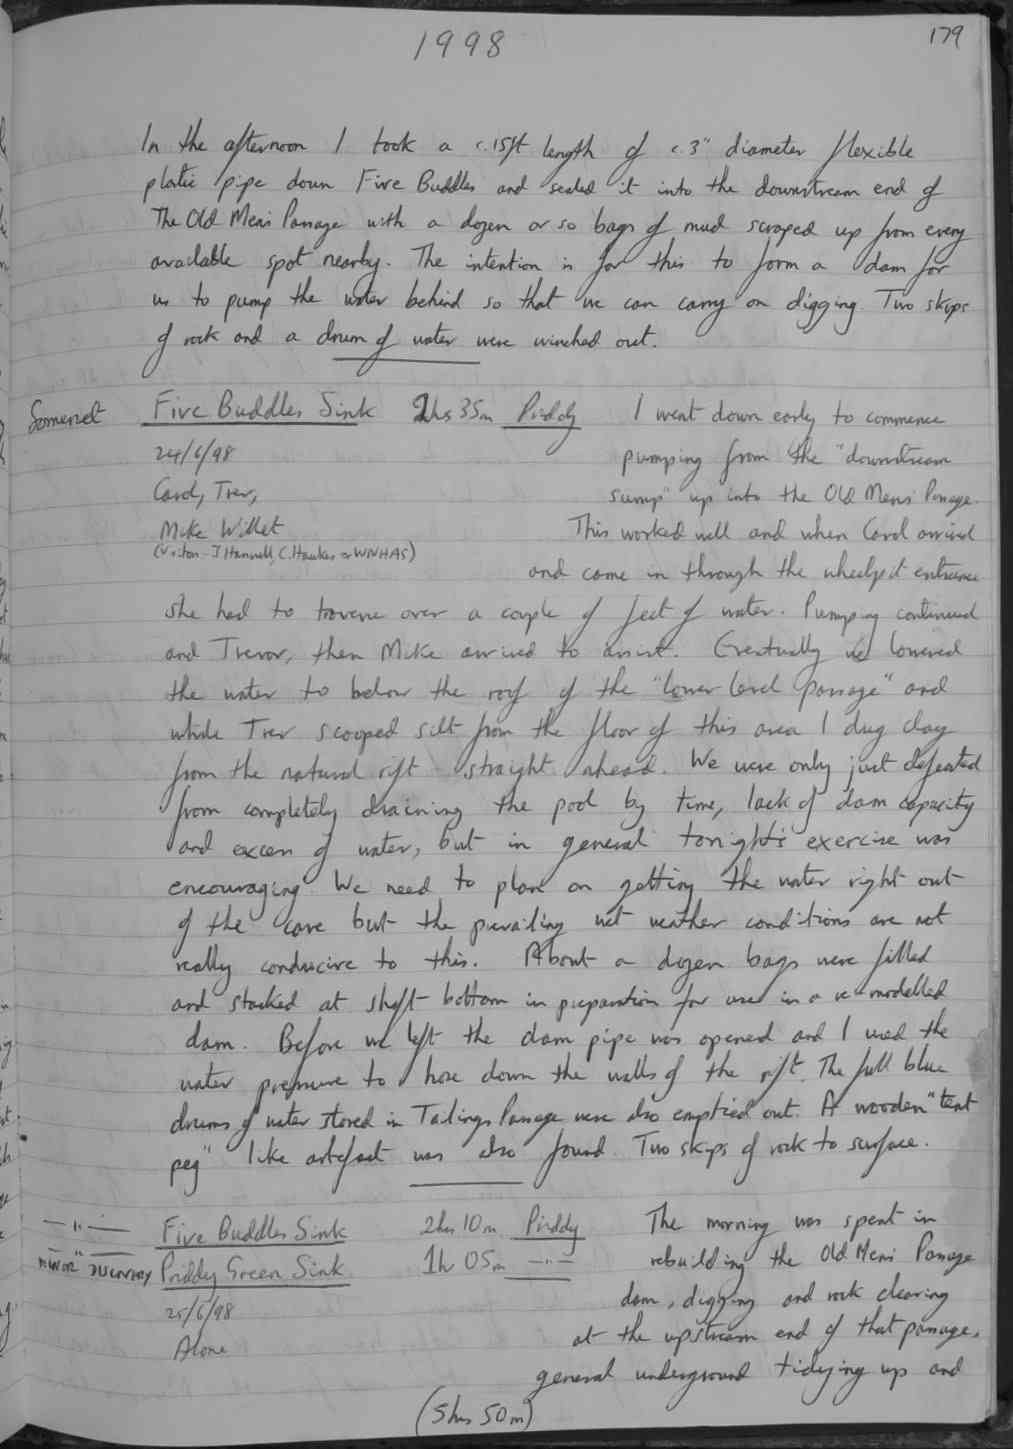 1998
179
In the afternoon I took a c.15ft length of c.3" diameter flexible
plastic pipe down Five Buddles and sealed it into the downstream end of
The Old Men's Passage with a dozen or so bags of mud scraped up from every
available spot nearby. The intention is for this to form a dam for
us to pump the water behind so that we can carry on digging. Two skips
of rock and a drum of water were winched out.
Somerset Five Buddles Sink 2hs 35m Priddy I went down early to commence
24/6/98 pumping from the "downstream
Carol, Trev, sump" up into the Old Men's Passage.
Mike Willet This worked well and when Carol arrived
(Visitors - J Hannell, C. Hawkes WNHAS)
and came in through the wheelpit entrance
she had to traverse over a couple of feet of water. Pumping continued
and Trevor, then Mike arrived to assist. Eventually we lowered
the water to below the roof of the "lower level passage" and
while Trev scooped silt from the floor of this area I dug clay
from the natural rift straight ahead. We were only just defeated
from completely draining the pool by time, lack of dam capacity
and excess of water, but in general tonight's exercise was
encouraging. We need to plan on getting the water right out
of the cave but the prevailing wet weather conditions are not
really conducive to this. About a dozen bags were filled
and stacked at shaft bottom in preparation for use in a re-modelled
dam. Before we left the dam pipe was opened and I used the
water pressure to hose down the walls of the rift. The full blue
drums of water stored in Tailings Passage were also emptied out. A wooden "tent
peg" like artefact was also found. Two skips of rock to surface.
— " — Five Buddles Sink 2hs 10m Priddy The morning was spent in
— " — Priddy Green Sink 1h 05m — " — rebuilding the Old Men's Passage
25/6/98 dam, digging and rock clearing
Alone at the upstream end of that passage,
general underground tidying up and
(5hs 50m)